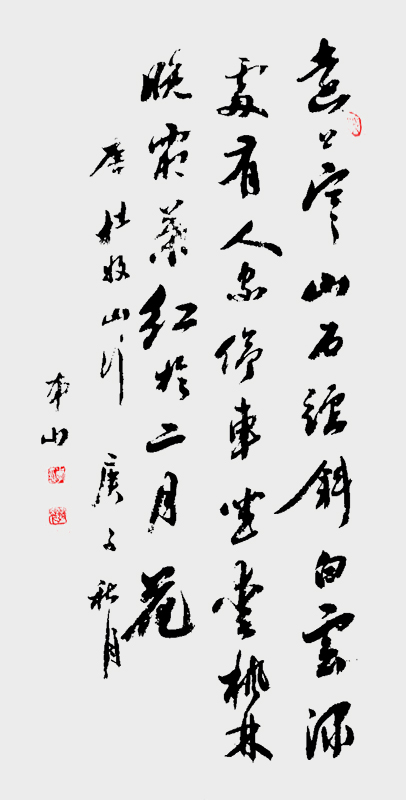 遠上寒山石徑斜白雲深
處有人家停車坐愛楓林
晚霜葉紅於二月花
唐杜牧山行 庚子秋月
本山